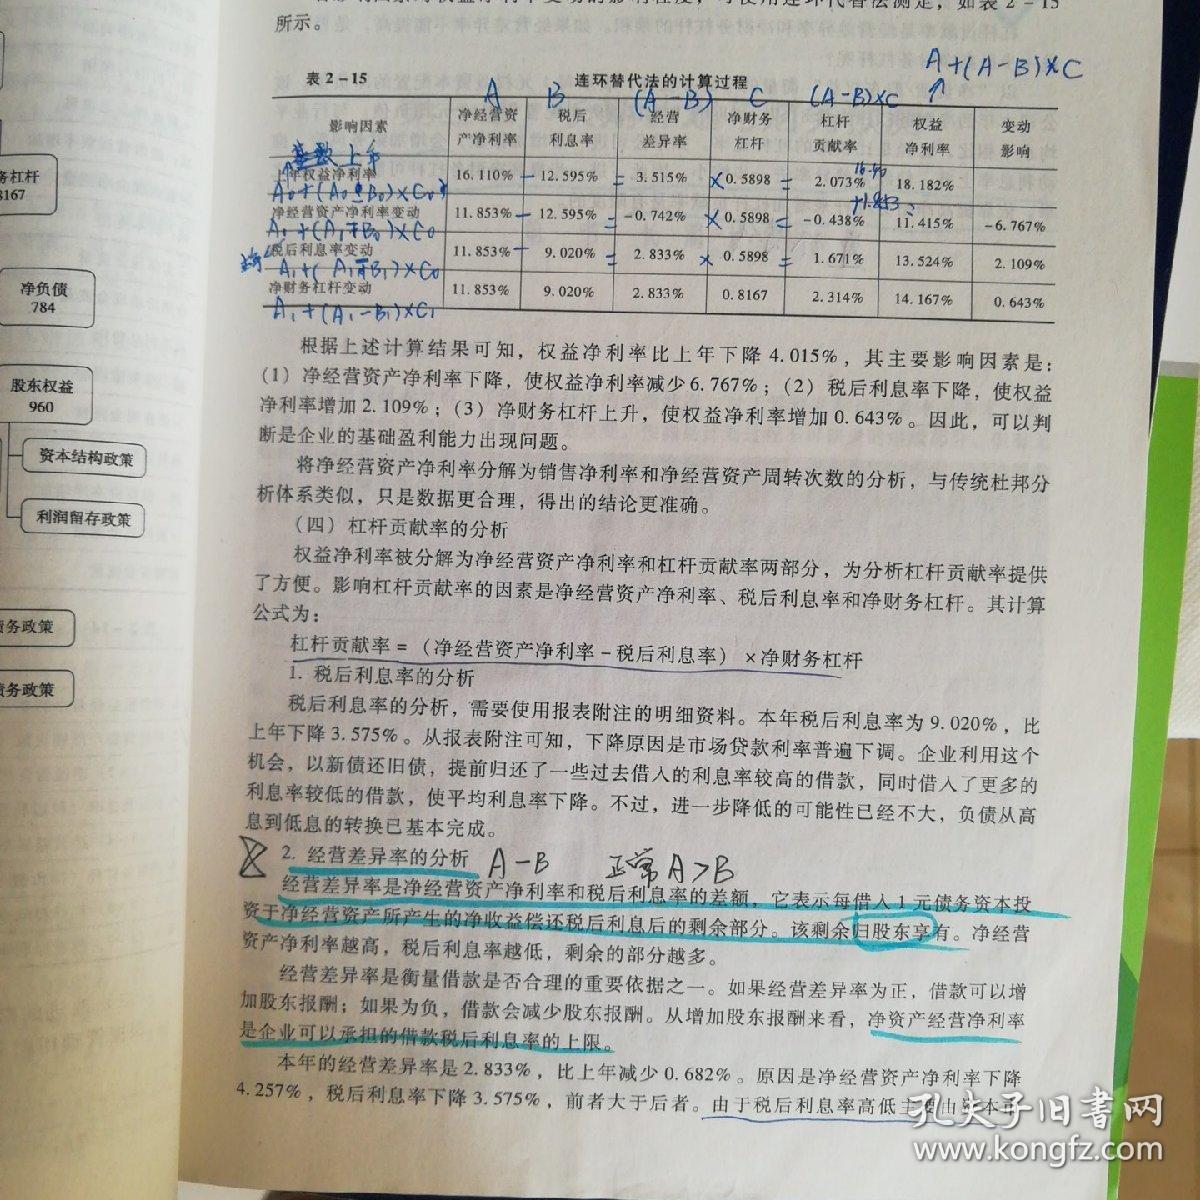 所示。
表2-15 连环替代法的计算过程
A+(A-B)×C
A B (A-B) C (A-B)×C
影响因素 净经营资产净利率 税后利息率 经营差异率 净财务杠杆 杠杆贡献率 权益净利率 变动影响
上年权益净利率 16.110% 12.595% 3.515% 0.5898 2.073% 18.182%
净经营资产净利率变动 11.853% 12.595% -0.742% 0.5898 -0.438% 11.415% -6.767%
税后利息率变动 11.853% 9.020% 2.833% 0.5898 1.671% 13.524% 2.109%
净财务杠杆变动 11.853% 9.020% 2.833% 0.8167 2.314% 14.167% 0.643%
A₁+(A₁-B₁)×C₁
根据上述计算结果可知，权益净利率比上年下降4.015%，其主要影响因素是：
（1）净经营资产净利率下降，使权益净利率减少6.767%；（2）税后利息率下降，使权益
净利率增加2.109%；（3）净财务杠杆上升，使权益净利率增加0.643%。因此，可以判
断是企业的基础盈利能力出现问题。
将净经营资产净利率分解为销售净利率和净经营资产周转次数的分析，与传统杜邦分
析体系类似，只是数据更合理，得出的结论更准确。
（四）杠杆贡献率的分析
权益净利率被分解为净经营资产净利率和杠杆贡献率两部分，为分析杠杆贡献率提供
了方便。影响杠杆贡献率的因素是净经营资产净利率、税后利息率和净财务杠杆。其计算
公式为：
杠杆贡献率=（净经营资产净利率-税后利息率）×净财务杠杆
1. 税后利息率的分析
税后利息率的分析，需要使用报表附注的明细资料。本年税后利息率为9.020%，比
上年下降3.575%。从报表附注可知，下降原因是市场贷款利率普遍下调。企业利用这个
机会，以新债还旧债，提前归还了一些过去借入的利息率较高的借款，同时借入了更多的
利息率较低的借款，使平均利息率下降。不过，进一步降低的可能性已经不大，负债从高
息到低息的转换已基本完成。
2. 经营差异率的分析 A-B 正常A>B
经营差异率是净经营资产净利率和税后利息率的差额，它表示每借入1元债务资本投
资于净经营资产所产生的净收益偿还税后利息后的剩余部分。该剩余归股东享有。净经营
资产净利率越高，税后利息率越低，剩余的部分越多。
经营差异率是衡量借款是否合理的重要依据之一。如果经营差异率为正，借款可以增
加股东报酬；如果为负，借款会减少股东报酬。从增加股东报酬来看，净资产经营净利率
是企业可以承担的借款税后利息率的上限。
本年的经营差异率是2.833%，比上年减少0.682%。原因是净经营资产净利率下降
4.257%，税后利息率下降3.575%，前者大于后者。由于税后利息率高低主要由资本市
务杠杆
8167
净负债
784
股东权益
960
资本结构政策
利润留存政策
债务政策
债务政策
孔夫子旧书网
www.kongfz.com